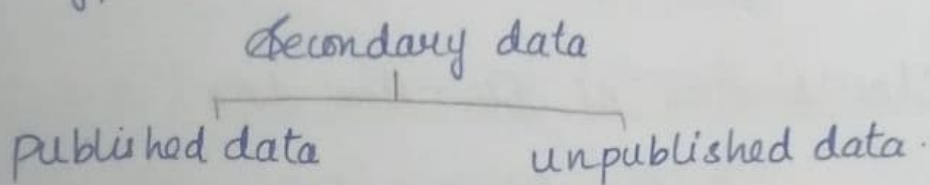 Secondary data
published data
unpublished data.